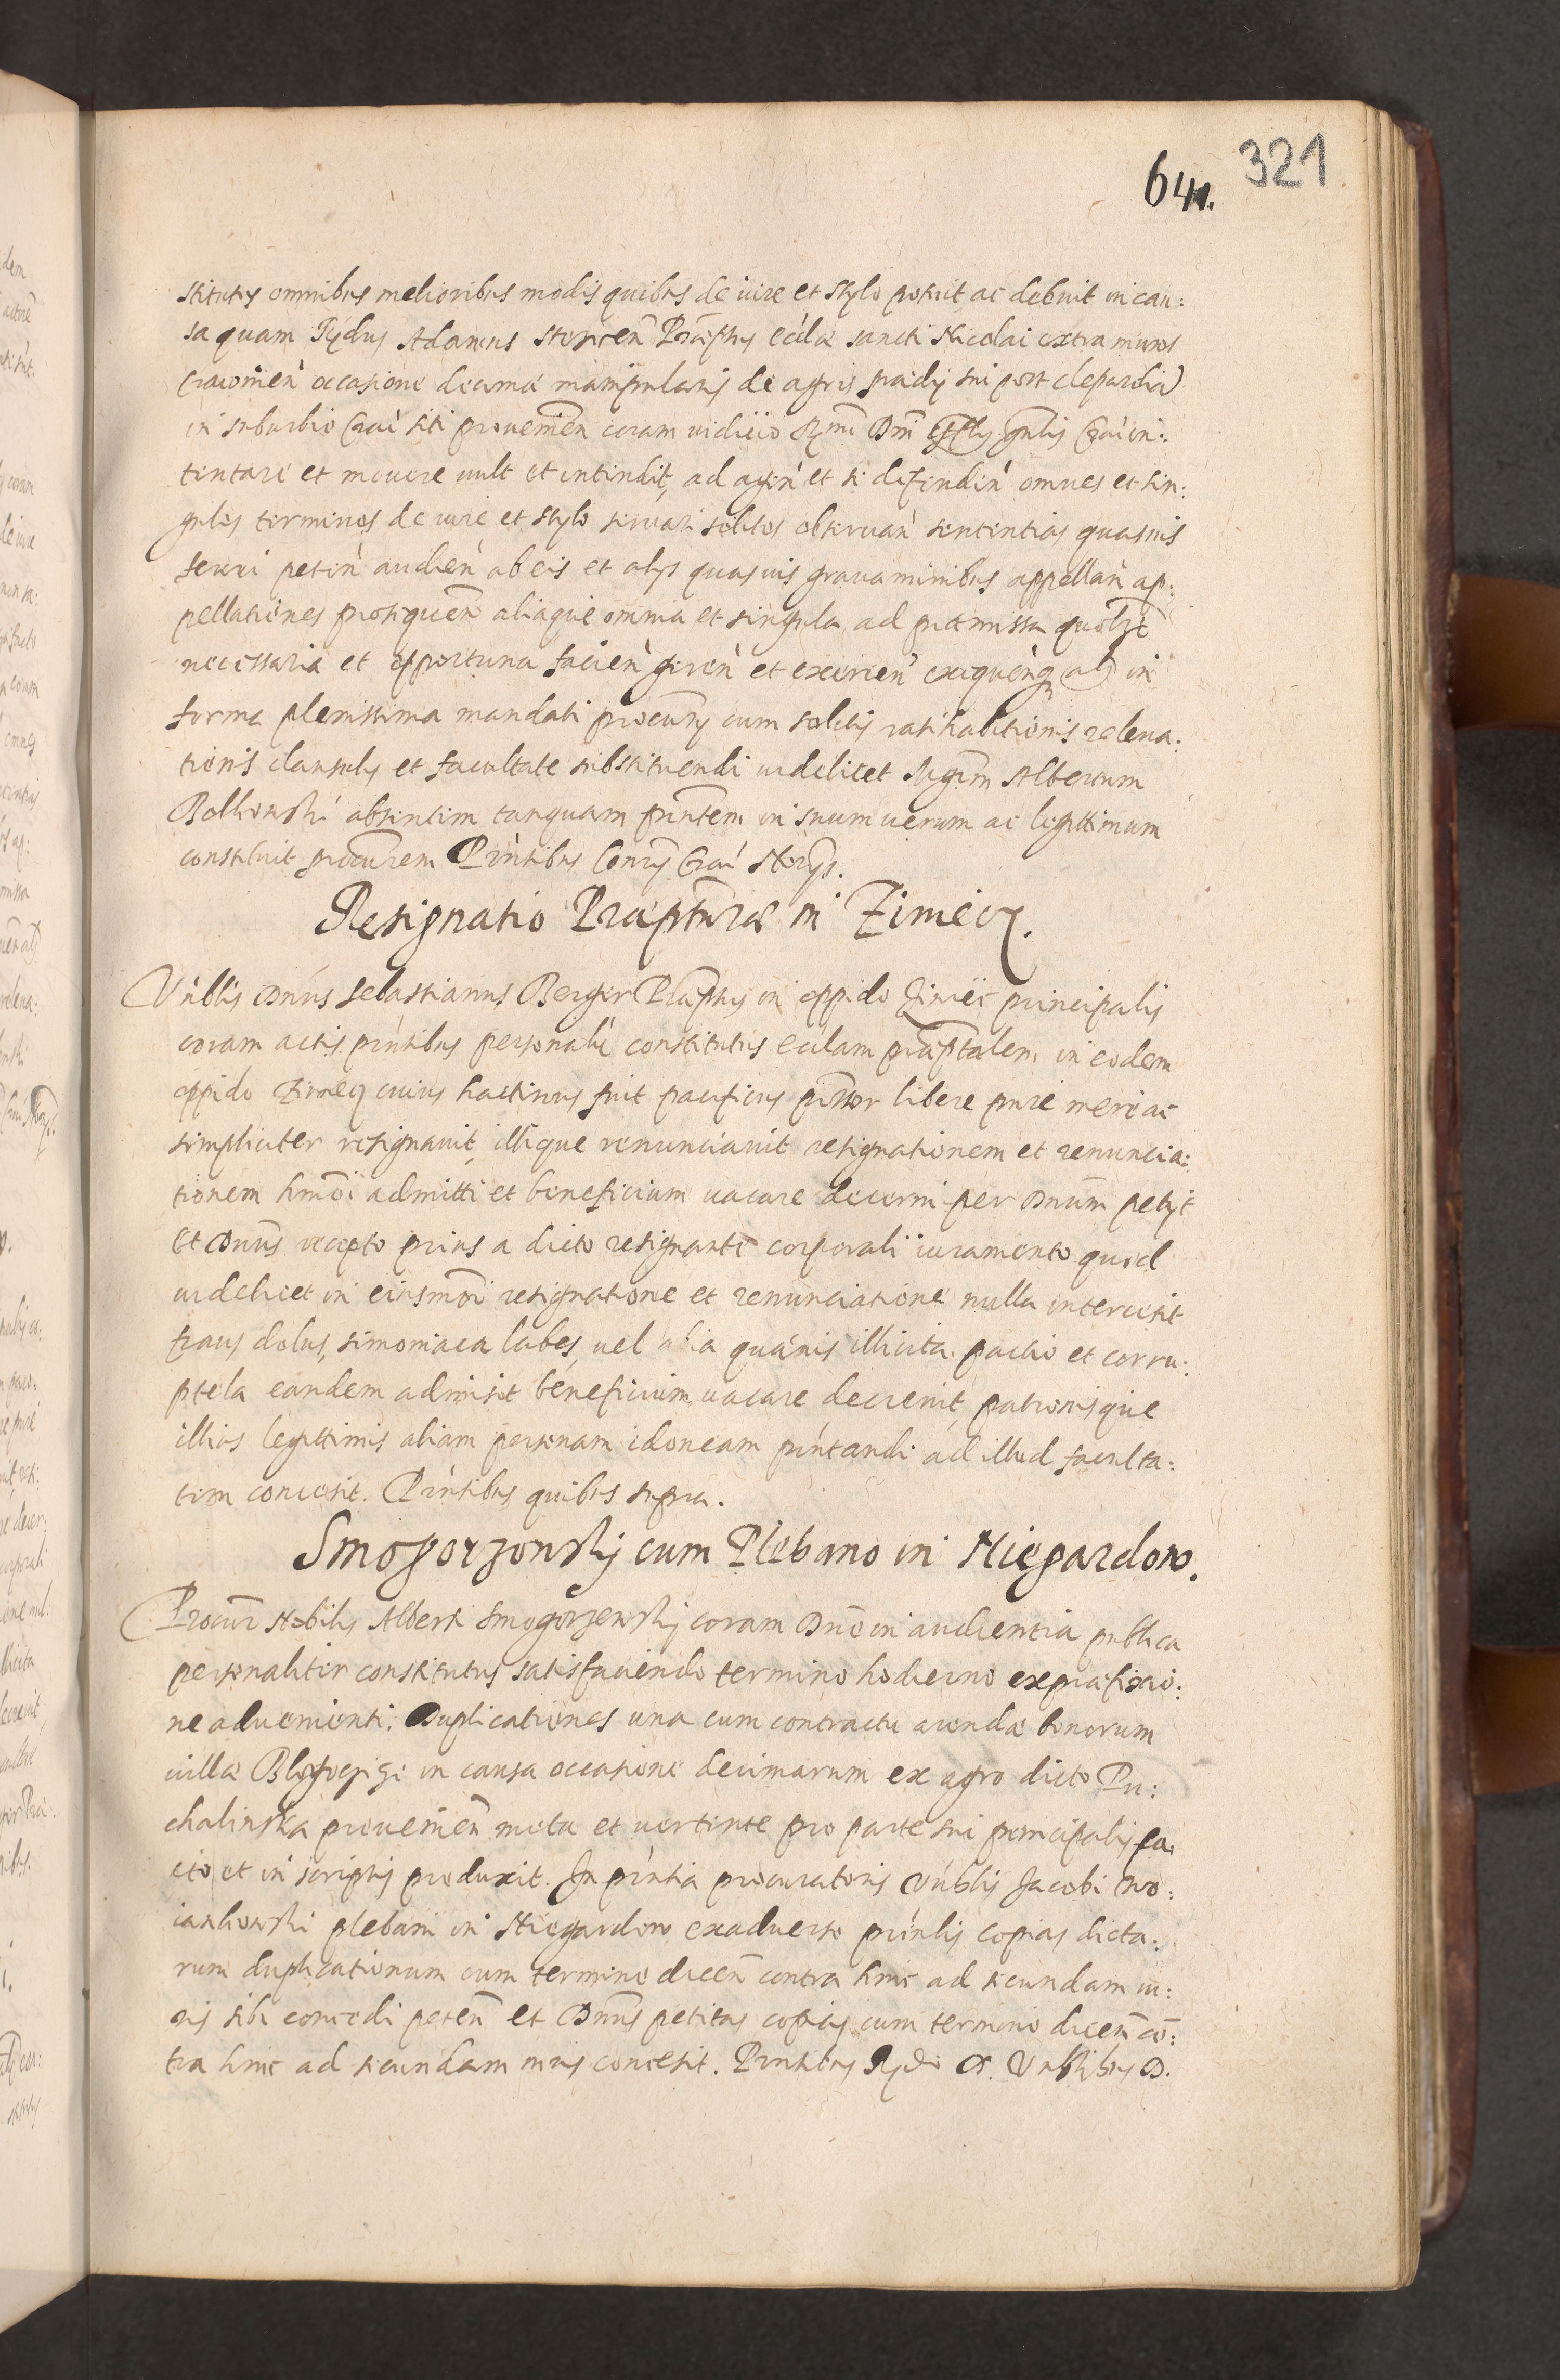 641. 321
stitutus omnibus melioribus modis quibus de iure et stylo potuit ac debuit in cau:
sa quam Rndus Adamus Praeptus eccliae sancti Nicolai extra muros
Cracovien occasione decimae manipularis de agris praedij sui post Clepardia
in suburbio Crac siti provenien coram iudicio Rmi Dni Offlis gnlis Crac in:
tentare et movere vult et intendit, ad agen et se defenden omnes et sin:
gulos terminos de iure et stylo servari solitos observan sententias quasvis
ferri peten audien ab eis et alijs quasvis gravaminibus appellan ap:
pellationes prosequen aliaque omnia et singula ad praemissa quolzt
necessaria et opportuna facien geren et exercen exequenq alj in
forma plenissima mandati procurij cum solitis ratihabitionis releva:
tionis clausulis et facultate substituendi videlicet Mgrm Albertum
Bolkowski absentem tanquam pntem in suum verum ac legittimum
constituit procurem Pntibus Conrij Crac Norijs.
Resignatio Praepturae in Zimiecz.
Vnblis Dnus Sebastianus Berger Praeptus in oppido Zimiec principalis
coram actis pntibus personalr constitutus ecclam praeptalem in eodem
oppido Zimiecz cuius hactenus fuit pacificus possor libere pure mere ac
simpliciter resignavit, illique renunciavit resignationem et renuncia:
tionem hmoi admitti et beneficium vacare decerni per Dnum petijt
Et Dnus recepto prius a dicto resignante corporali iuramento quod
videlicet in eiusmoi resignatione et renunciatione nulla intercesit
fraus dolus, simoniaca labes, vel alia quaevis illicita pactio et corru:
ptela eandem admisit beneficium vacare decrevit, patronisque
illius legittimis aliam personam idoneam pntandi ad illud faculta:
tem concesit. Pntibus quibus supra.
Smogorzowskj cum Plebano in Niegardow.
Procur Nobilis Alberti Smogorzewskj coram Dno in audientia publica
personaliter constitutus satisfaciendo termino hodierno ex praefixio:
ne advenienti. Duplicationes una cum contractu arendae bonorum
villae in causa occasione decimarum ex agro dicto Pu:
chalinska provenien mota et vertente pro parte sui principalis fa:
cto et in scriptis produxit. In pntia procuratoris Vnblis Jacobi Wo:
iankowski plebani in Niegardow exadverso pnnlis copias dicta:
rum duplicationum cum termino dicen contra hinc ad secundam iu:
ris sibi concedi peten et Dnus petitas copias cum termino dicen co:
tra hinc ad secundam iuris concesit. Pntibus Rndo et Vnblibus D.